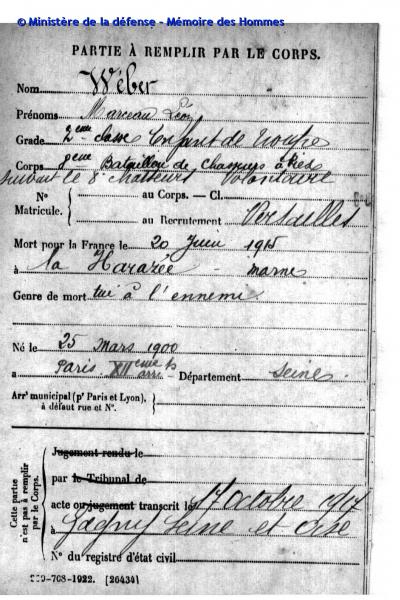 © Ministère de la défense - Mémoire des Hommes
PARTIE À REMPLIR PAR LE CORPS.
Nom Wéber
Prénoms Marceau Léon
Grade 2ème classe Enfant de troupe
Corps 8ème Bataillon de chasseurs à pied
suivant le 8e chasseurs volontaire
N° Matricule. { au Corps. — Cl.
au Recrutement Versailles
Mort pour la France le 20 Juin 1915
à la Harazée - marne
Genre de mort tué à l'ennemi
Né le 25 mars 1900
à Paris XIIème arr. Département Seine
Arrt municipal (pr Paris et Lyon),
à défaut rue et N°.
Cette partie n'est pas à remplir par le Corps.
Jugement rendu le
par le Tribunal de
acte ou jugement transcrit le 17 Octobre 1917
à Gagny Seine et Oise
N° du registre d'état civil
-708-1922. [26434]